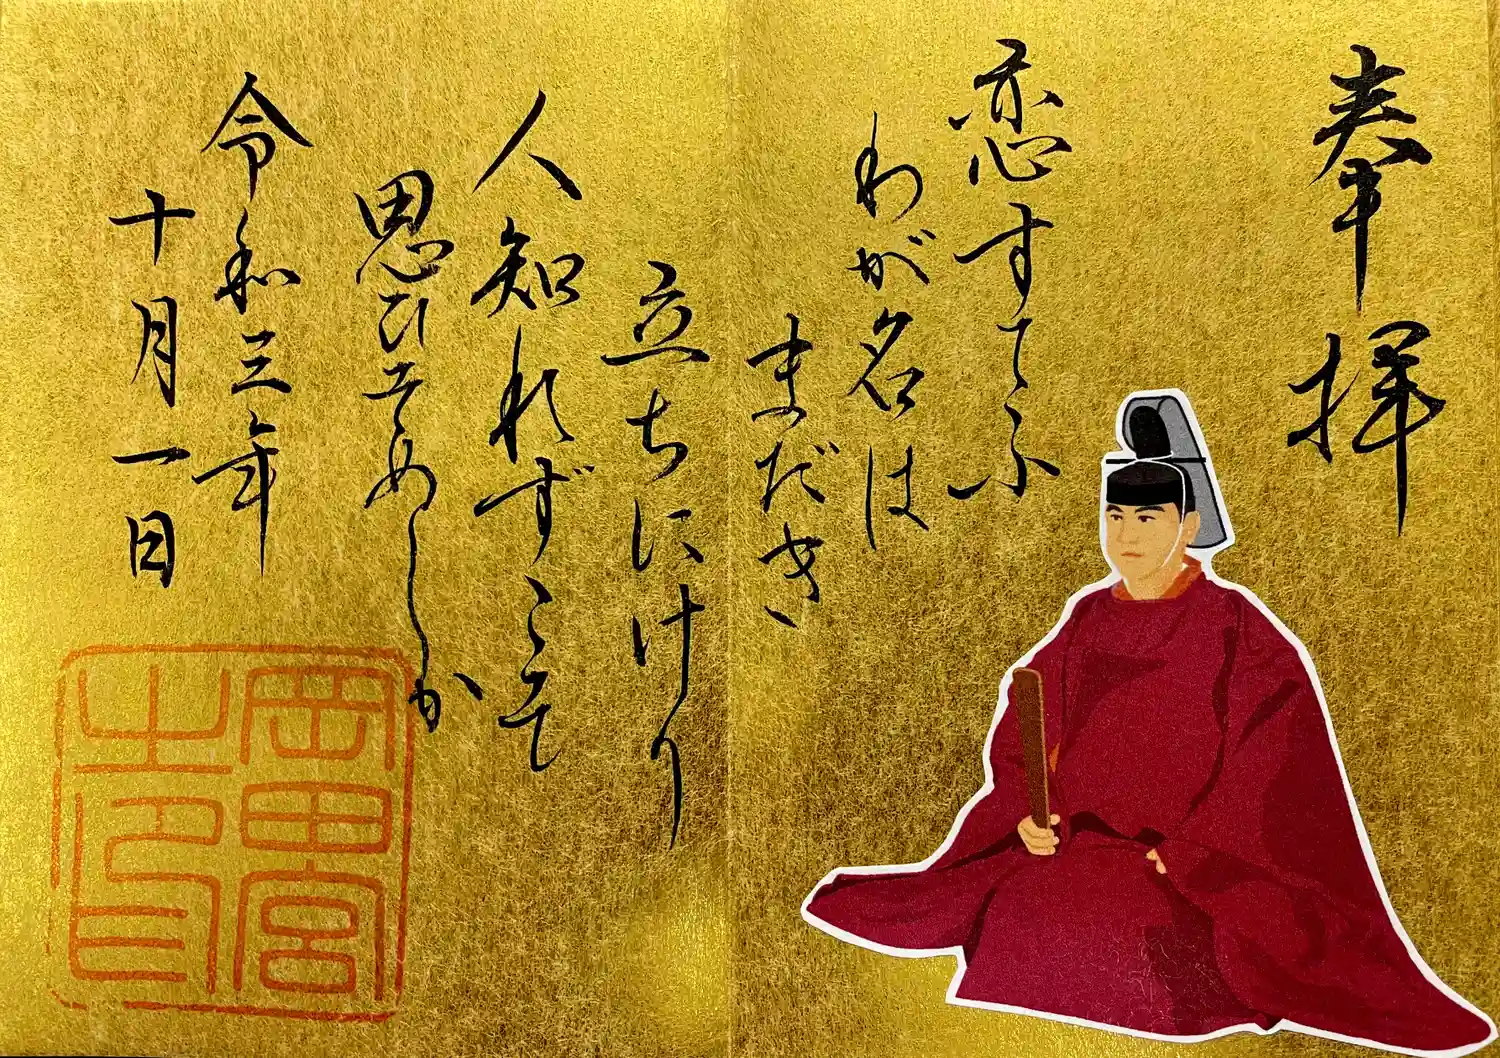 奉拝
恋すてふ
わが名は
まだき
立ちにけり
人知れずこそ
思ひそめしか
令和三年
十月一日
岡田宮
之印